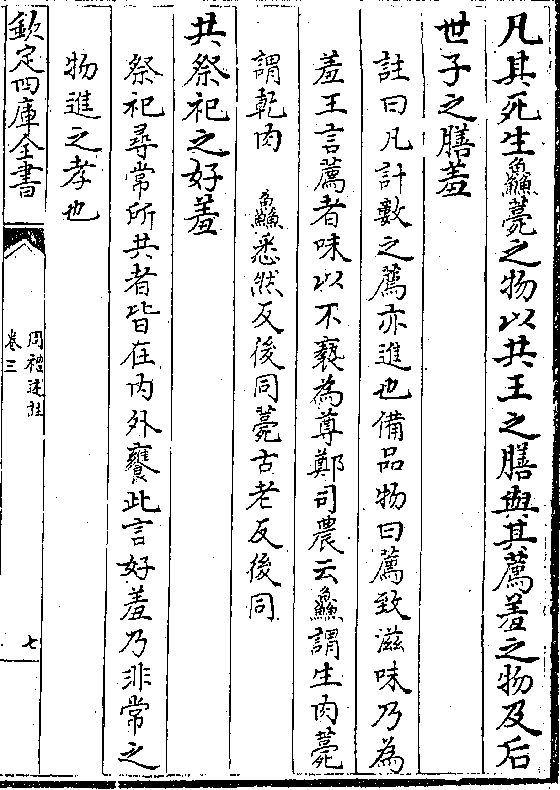 凡其死生鱻薧之物以共王之膳與其薦羞之物及后
世子之膳羞
註曰凡計數之薦亦進也備品物曰薦致滋味乃為
羞王言薦者味以不褻為尊鄭司農云鱻謂生肉薧
謂乾肉　鱻悉然反後同薧古老反後同
共祭祀之好羞
祭祀尋常所共者皆在內外饔此言好羞乃非常之
物進之孝也
欽定四庫全書
周禮述註
卷三
七